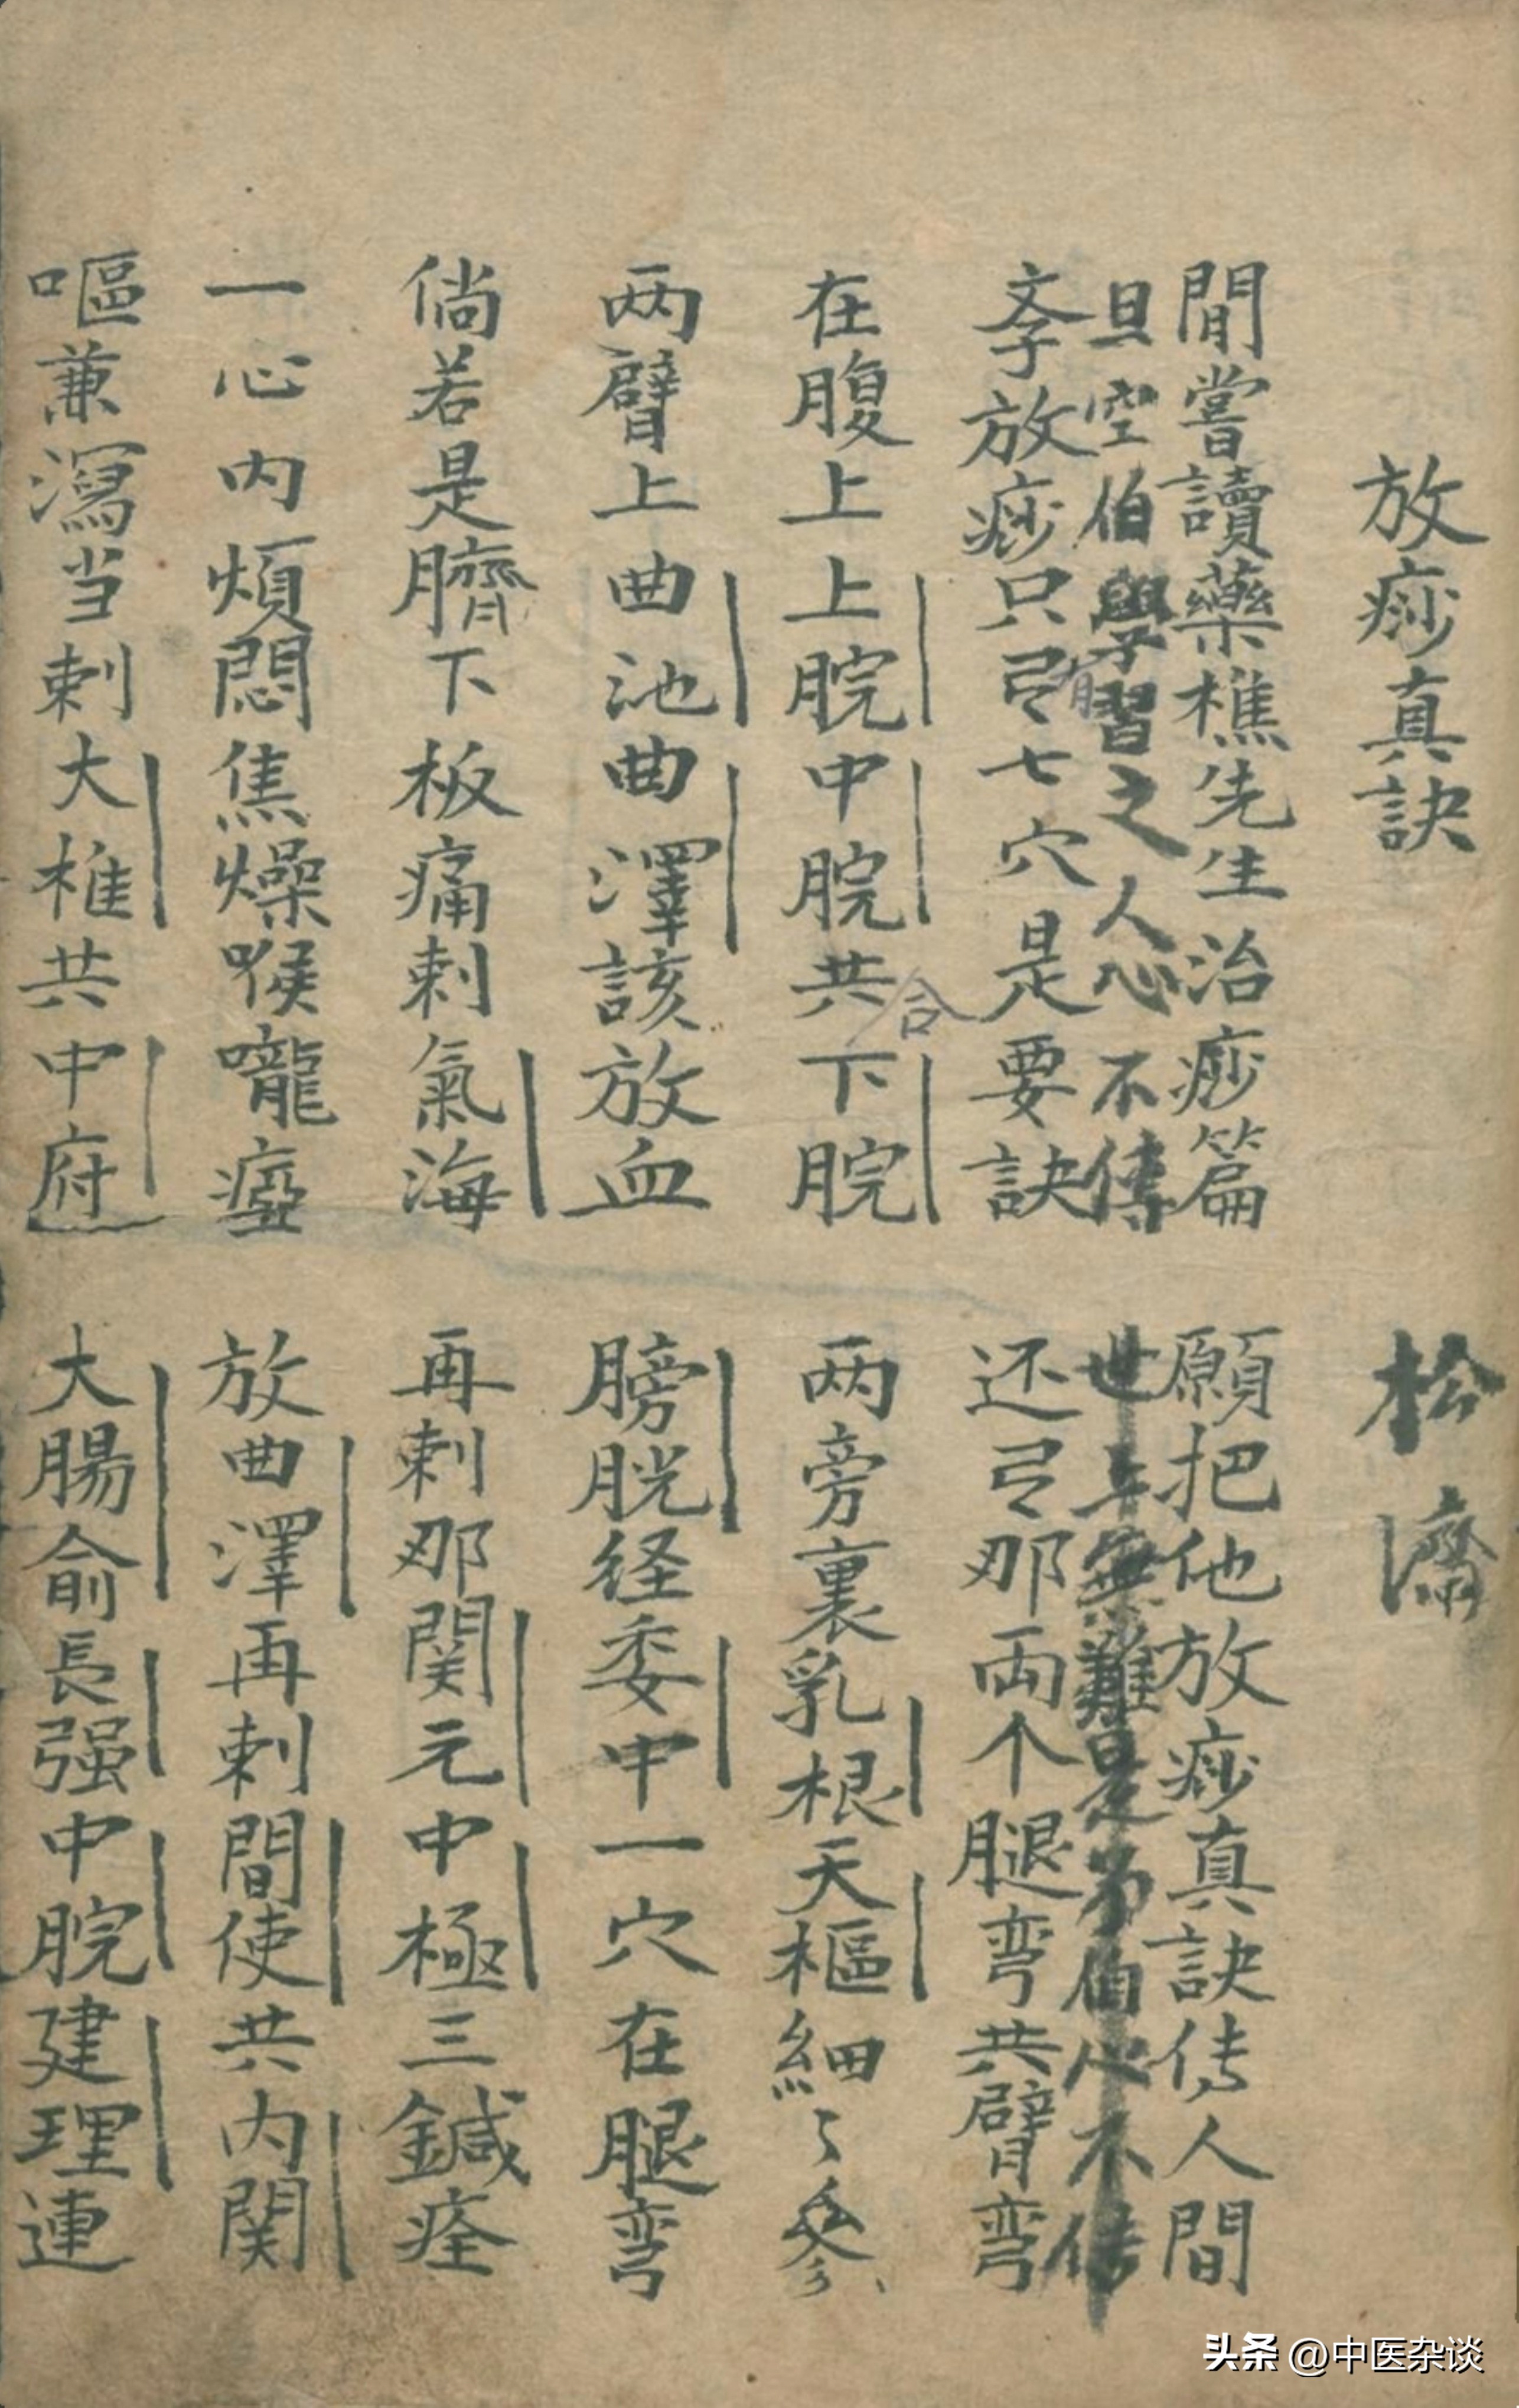 放痧真訣 松濤
閒嘗讀藥樵先生治痧篇 願把他放痧真訣传人間
旦空伯學習之人心不傳 世上無難是弟伯心不传
斈放痧只弓七穴是要訣 还弓那両个腿弯共臂弯
有
在腹上上脘中脘共下脘 两旁裏乳根天樞細々叅
合
两臂上曲池曲澤該放血 膀胱经委中一穴在腿弯
倘若是臍下板痛刺氣海 再刺那関元中極三鍼痊
一心内煩悶焦燥喉嚨瘂 放曲澤再刺間使共内関
嘔兼瀉当刺大椎共中府 大腸俞長强中脘建理連
头条 @中医杂谈